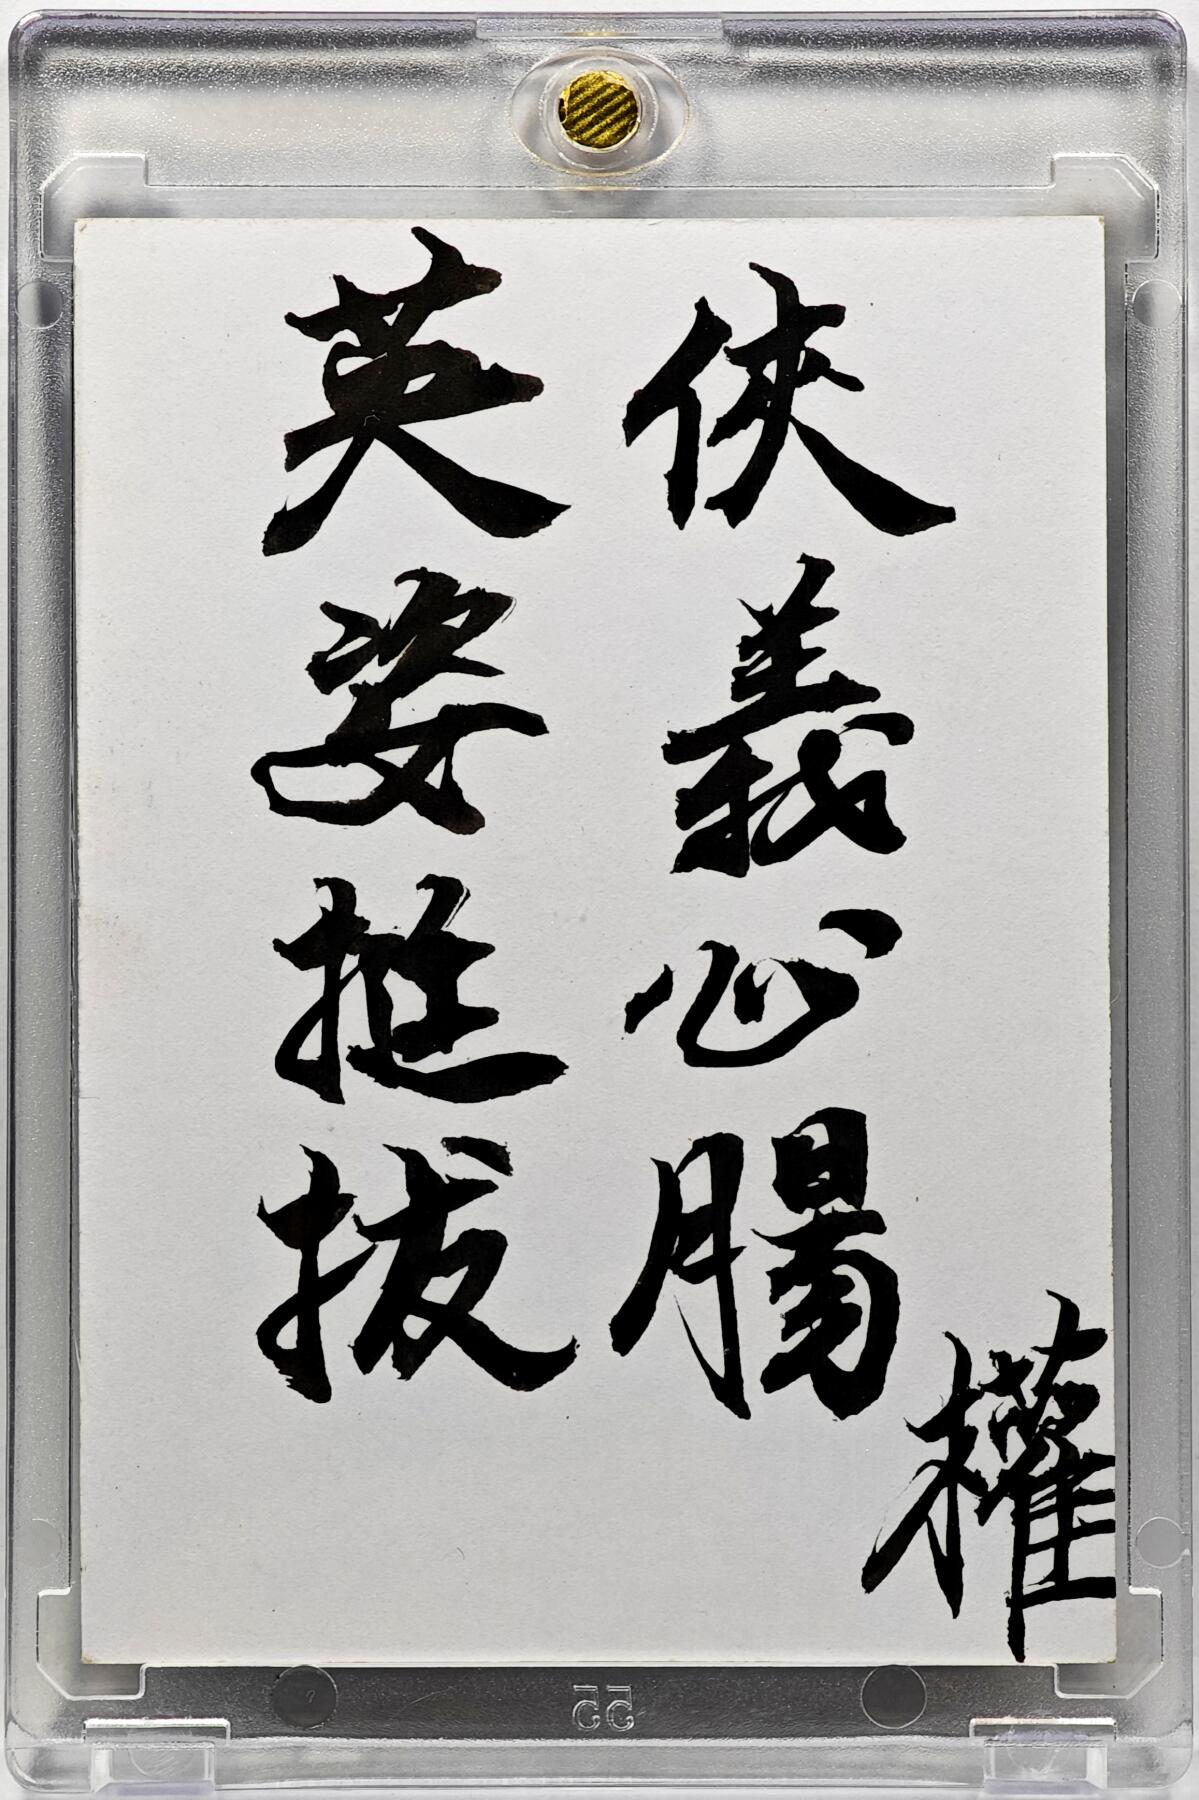 俠義心腸
英姿挺拔
權
55